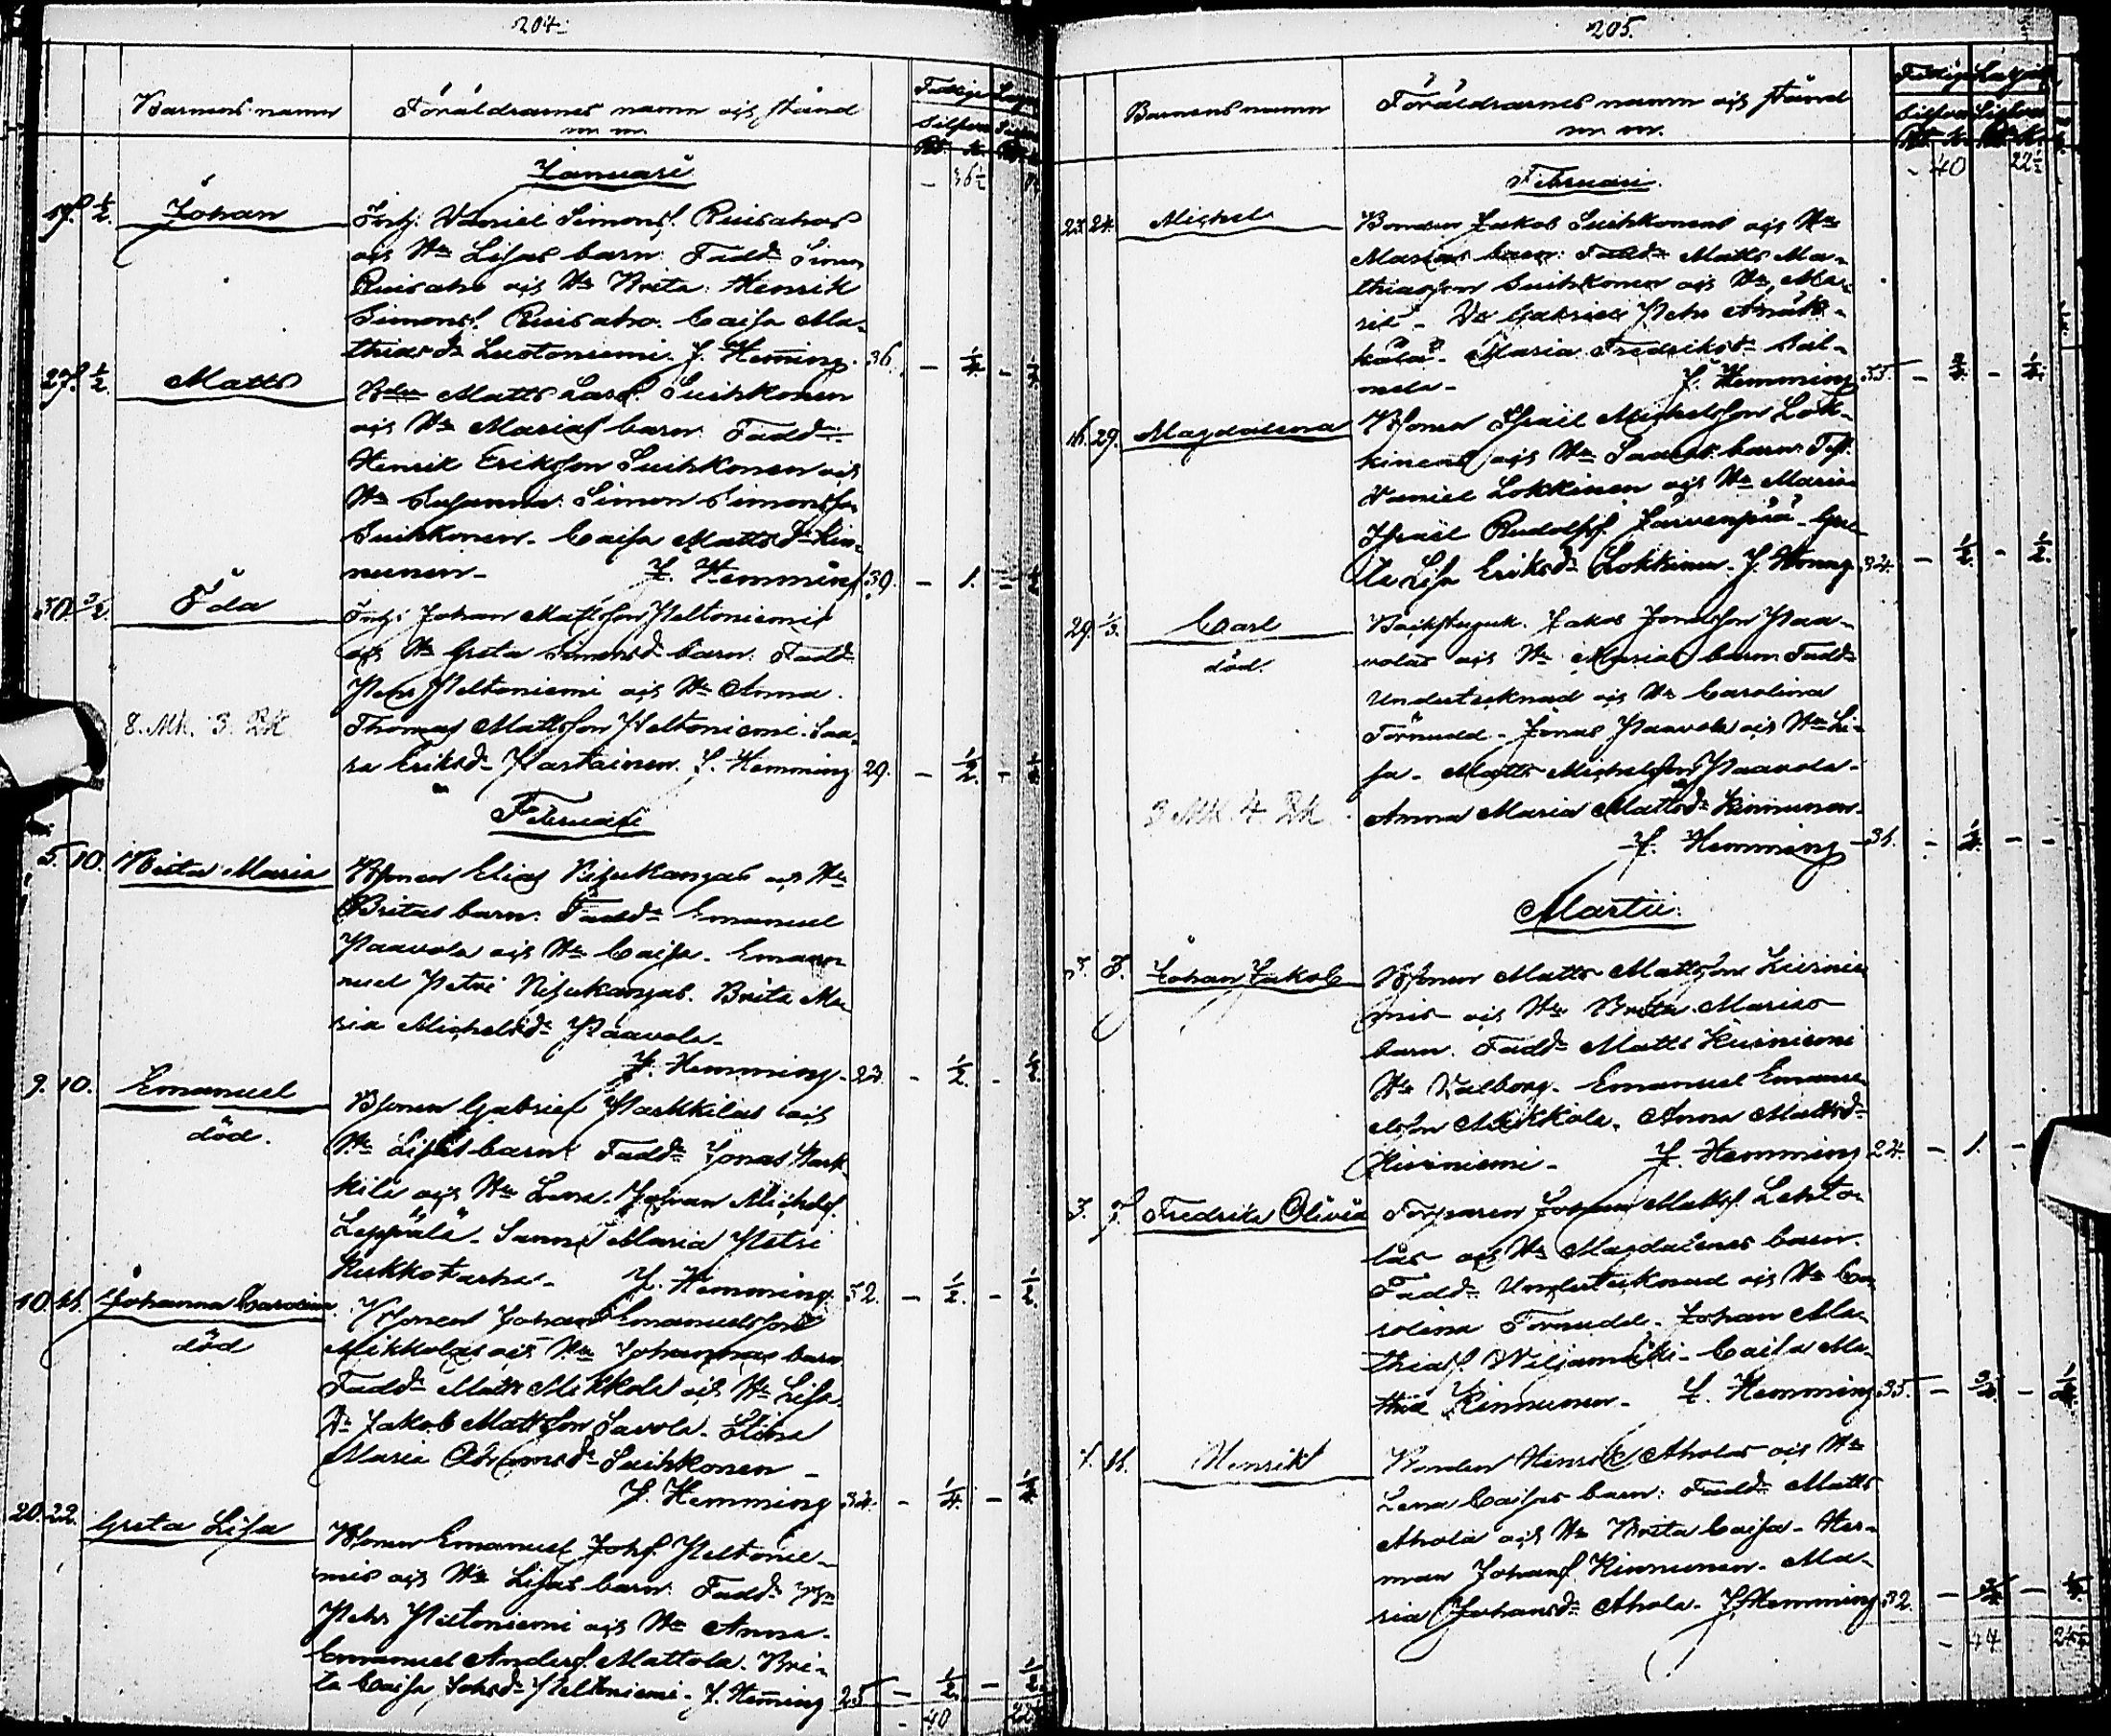 204.
Barnens namn Föräldrarnes namn och stånd
m m.
Silfver
Januari
- 36½
17. ½. Johan Inhy. Daniel Simonss. Ruisahos
och Hu Lisas barn. Fadd. Simon
Ruisaho och Hu Brita. Henrik
Simonss. Ruisaho. Caisa Ma-
thiasdr Luotoniemi. J. Heming. 36.
27. ½. Matts Bdn Matts Larss. Suihkonen
och Hu Marias barn. Fadd.
Henrik Eriksson Suihkonen och
Hu Susanna. Simon Simonsson
Suihkonen. Caisa Mattsdr Kin-
nunen. J. Hemming 39. - 1.
30. 3/2. Ida Inhy. Johan Mattsson Peltoniemis
och Hu Greta Simonsdr barn. Fadd.
Pehr Peltoniemi och Hu Anna.
8. Mk. 3. Rk. Thomas Mattsson Peltoniemi. Saa-
ra Eriksdr Partainen. J. Hemming 29. - ½. -
Februari
5. 10. Brita Maria Bonen Elias Nisukangas och Hu
Britas barn. Fadd. Emanuel
Paavola och Hu Caisa. Ema-
nuel Petri Nisukangas. Brita Ma-
ria Michelsdr Paavola.
J. Hemming. 23. - ½. - ½.
9. 10. Emanuel Bonen Gabriel Parkkilas och
död. Hu Lisas barn. Fadd. Jonas Park-
kila och Hu Lena. Johan Michelss.
Leppälä. Sanna Maria Petri
Kukkotarha. J. Hemming. 32. - ½. - ½.
10. 11. Johanna Carolina Bonen Johan Emanuelsson
död Mikkolas och Hu Johannas barn.
Fadd. Matts Mikkola och Hu Lisa.
Dr Jakob Mattsson Savola. Elina
Maria Abramsdr Suihkonen -
J. Hemming 34. - ¼. - ¼
20. 22. Greta Lisa Bonen Emanuel Johss. Peltonie-
mis och Hu Lisas barn. Fadd.
Pehr Peltoniemi och Hu Anna.
Emanuel Anderss. Mattola. Bri-
ta Caisa Johsdr Peltoniemi. J. Heming 25 - ½. - ½
- 40 22½
205.
Barnens namn Föräldrarnes namn och stånd
m m.
Silfver
- 40 22½
Februari.
23. 24. Michel Bonden Jakob Suihkonens och Hu
Marias barn. Fadd. Matts Ma-
thiasson Suihkonen och Hu Ma-
ria. Dr Gabriel Pehr
kälä. Maria Fredriksdr Sal-
mela. J. Hemming 35. - ¾. - ¼.
16. 29. Magdalena Bonen Isräil Michelsson Lok-
kinens och Hu Saaras barn. Test.
Daniel Lokkinen och Hu Maria
Israel Rudolfss. Järvenpää. Gre-
ta Lisa Eriksdr Lokkinen. J. Heming 34. - ½. - ½.
29. 1/3. Carl Backstuguk. Jakob Jonasson Paa-
död. volas och Hu Marias barn. Fadd.
Undertecknad och Hu Carolina
Törnudd. Jonas Paavola och Hu Li-
sa. Matts Michelsson Paavola.
3 Mk 4 Rk. Anna Maria Mattsdr Kinnunen.
J. Hemming 31. -
Martii.
5. Johan Jakob Bonen Matts Mattsson Kiirnie-
mis och Hu Brita Marias
barn. Fadd. Matts Kiirniemi
Hu Valborg. Emanuel Emanu-
elsson Mikkola. Anna Mattsdr
Kiirniemi. J. Hemming 24. - 1. -
3. 7. Fredrika Olivia Torparen Johan Mattss. Lehto-
las och Hu Magdalenas barn.
Fadd. Undertecknad och Hu Ca-
rolina Törnudd. Johan Ma-
thiass. Wiljamäki. Caisa Ma-
thia Kinnunen. J. Hemming 35. - ¾ - ¼
7. 11. Henrik Bonden Henrik Aholas och Hu
Lena Caisas barn. Fadd. Matts
Ahola och Hu Brita Caisa. Her-
man Johanss. Kinnunen. Ma-
ria Johansdr Ahola. J. Hemming 32. - ¾ -
- 44